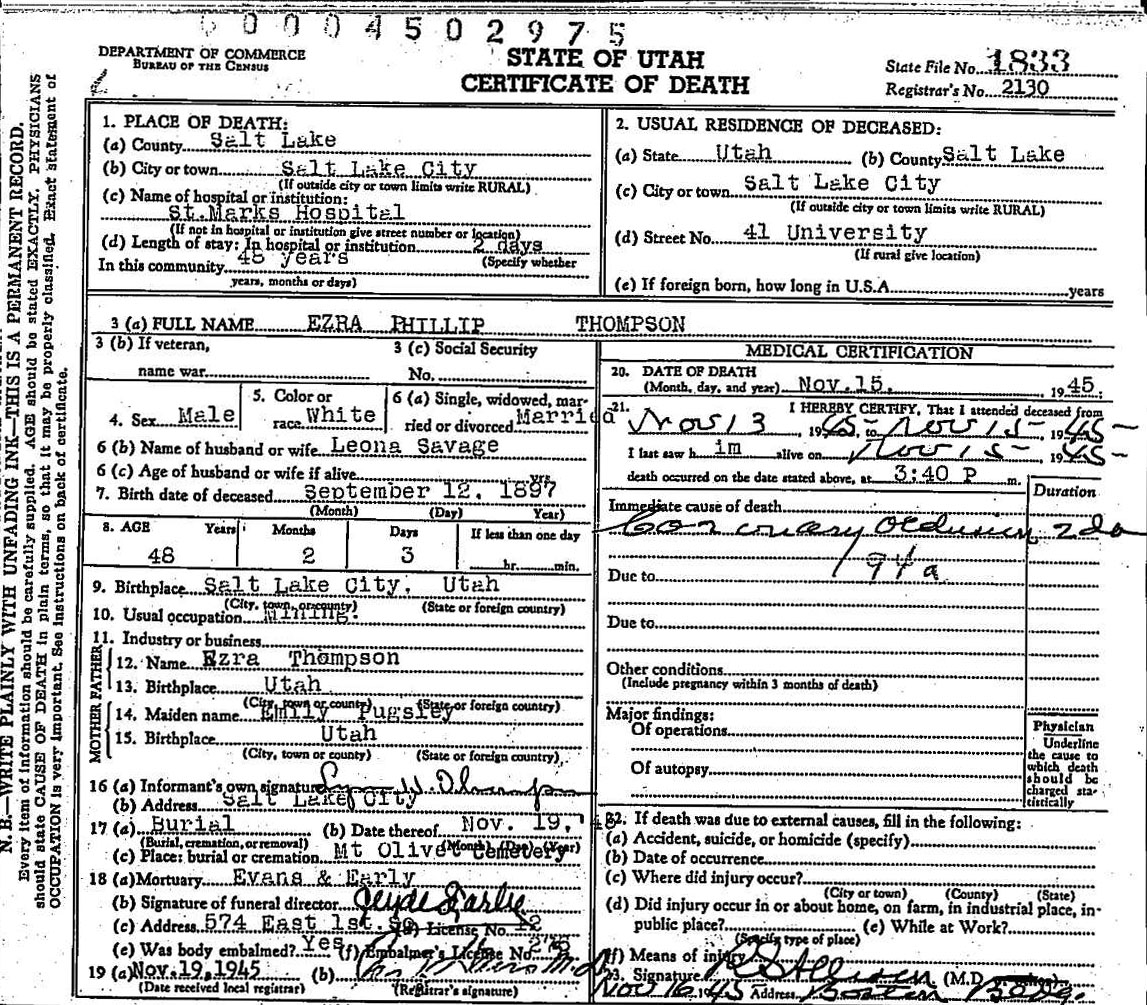 00004502975
DEPARTMENT OF COMMERCE
BUREAU OF THE CENSUS
STATE OF UTAH
CERTIFICATE OF DEATH
State File No. 1833
Registrar's No. 2130
N. B.—WRITE PLAINLY WITH UNFADING INK—THIS IS A PERMANENT RECORD.
Every item of information should be carefully supplied. AGE should be stated EXACTLY. PHYSICIANS
should state CAUSE OF DEATH in plain terms, so that it may be properly classified. Exact statement of
OCCUPATION is very important. See instructions on back of certificate.
1. PLACE OF DEATH:
(a) County Salt Lake
(b) City or town Salt Lake City
(If outside city or town limits write RURAL)
(c) Name of hospital or institution:
St.Marks Hospital
(If not in hospital or institution give street number or location)
(d) Length of stay: In hospital or institution 2 days
In this community 48 years (Specify whether
years, months or days)
2. USUAL RESIDENCE OF DECEASED:
(a) State Utah (b) County Salt Lake
(c) City or town Salt Lake City
(If outside city or town limits write RURAL)
(d) Street No. 41 University
(If rural give location)
(e) If foreign born, how long in U.S.A. years
3 (a) FULL NAME EZRA PHILLIP THOMPSON
3 (b) If veteran, 3 (c) Social Security
name war No.
4. Sex Male 5. Color or race White 6 (a) Single, widowed, married or divorced Married
6 (b) Name of husband or wife Leona Savage
6 (c) Age of husband or wife if alive yrs.
7. Birth date of deceased September 12, 1897
(Month) (Day) Year)
8. AGE Years Months Days If less than one day
48 2 3 hr. min.
9. Birthplace Salt Lake City, Utah
(City, town, or county) (State or foreign country)
10. Usual occupation Mining.
11. Industry or business
FATHER
12. Name Ezra Thompson
13. Birthplace Utah
(City, town or county) (State or foreign country)
MOTHER
14. Maiden name Emily Pugsley
15. Birthplace Utah
(City, town or county) (State or foreign country)
16 (a) Informant's own signature
(b) Address Salt Lake City
17 (a) Burial (b) Date thereof Nov. 19, '45
(Burial, cremation, or removal) (Month) (Day) (Year)
(c) Place: burial or cremation Mt Olivet Cemetery
18 (a) Mortuary Evans & Early
(b) Signature of funeral director Clyde Earley
(c) Address 574 East 1st. So (d) License No. 12
(e) Was body embalmed? Yes (f) Embalmer's License No.
19 (a) Nov.19,1945 (b)
(Date received local registrar) (Registrar's signature)
MEDICAL CERTIFICATION
20. DATE OF DEATH
(Month, day, and year) Nov.15, 1945
21. I HEREBY CERTIFY, That I attended deceased from
Nov 13, 1945 to Nov 15- 1945-
I last saw h im alive on Nov 15- 1945-
death occurred on the date stated above, at 3:40 P m.
Immediate cause of death Duration
Coronary Occlusion 2 da
94a
Due to
Due to
Other conditions
(Include pregnancy within 3 months of death)
Major findings:
Of operations
Of autopsy
Physician
Underline
the cause to
which death
should be
charged sta-
tistically
22. If death was due to external causes, fill in the following:
(a) Accident, suicide, or homicide (specify)
(b) Date of occurrence
(c) Where did injury occur?
(City or town) (County) (State)
(d) Did injury occur in or about home, on farm, in industrial place, in-
public place? (e) While at Work?
(Specify type of place)
(f) Means of injury
23. Signature (M.D.
Nov 16 1945 Address Boston Bldg.